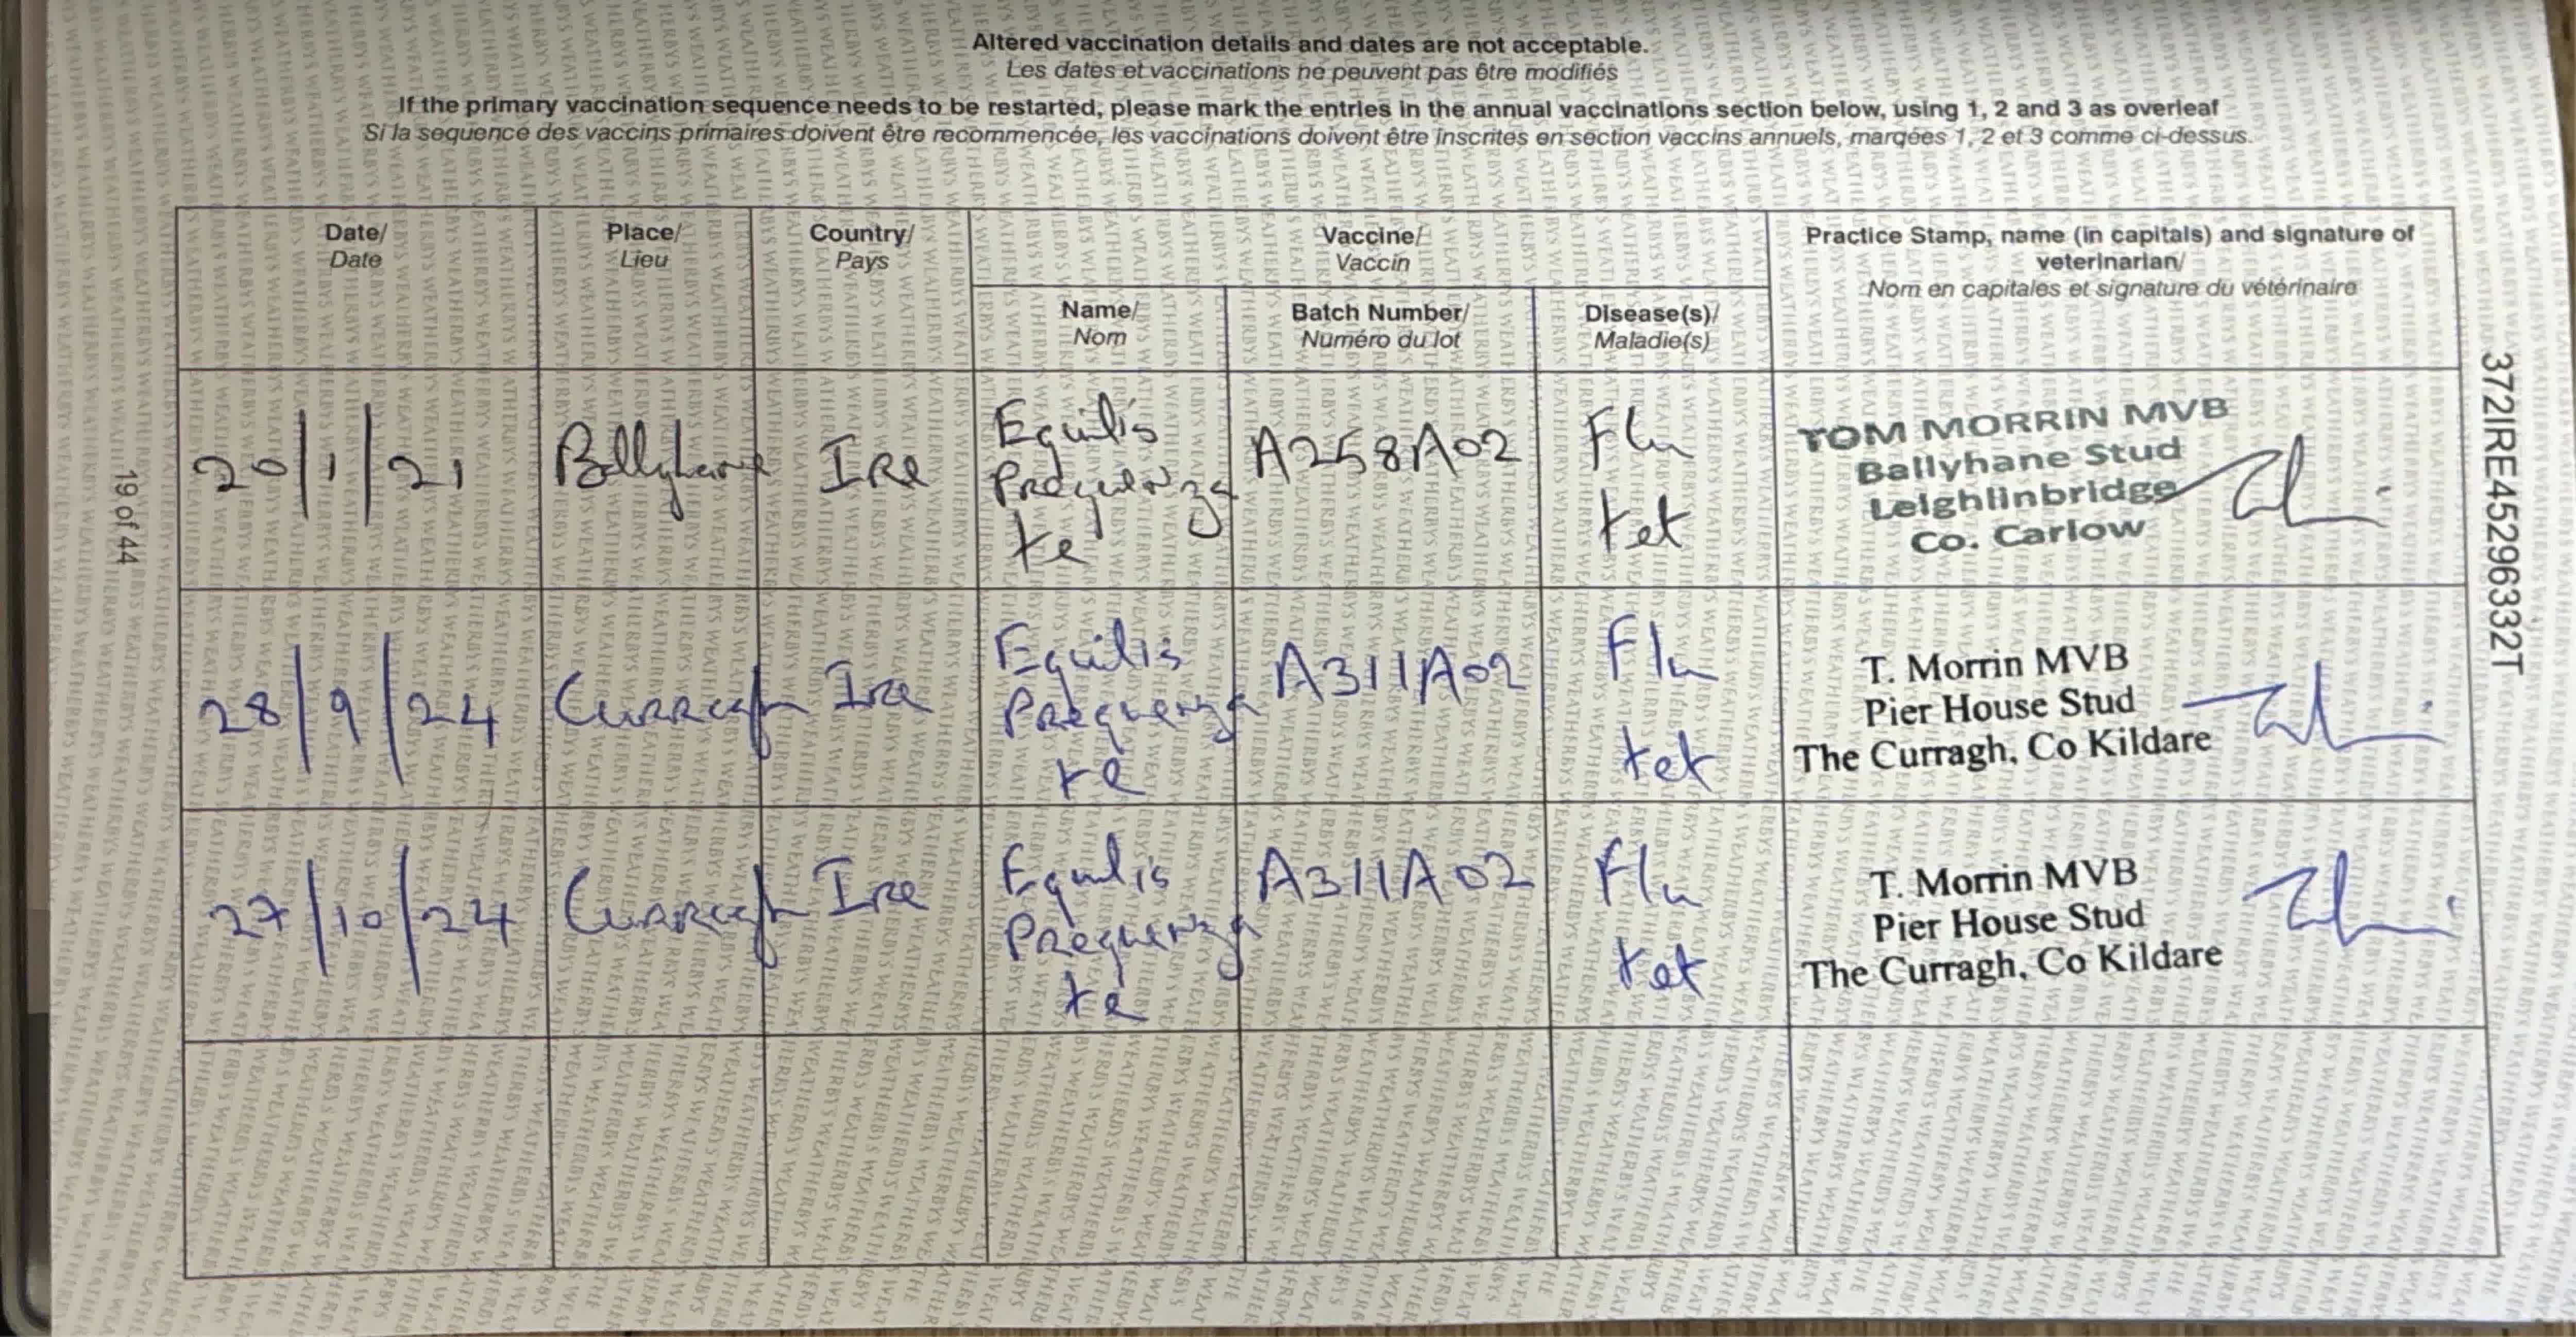 Altered vaccination details and dates are not acceptable.
Les dates et vaccinations ne peuvent pas être modifiés
If the primary vaccination sequence needs to be restarted, please mark the entries in the annual vaccinations section below, using 1, 2 and 3 as overleaf
Si la sequence des vaccins primaires doivent être recommencée, les vaccinations doivent être inscrites en section vaccins annuels, marqées 1, 2 et 3 comme ci-dessus.
Date/
Date
Place/
Lieu
Country/
Pays
Vaccine/
Vaccin
Practice Stamp, name (in capitals) and signature of
veterinarian/
Nom en capitales et signature du vétérinaire
Name/
Nom
Batch Number/
Numéro du lot
Disease(s)/
Maladie(s)
20/1/21
Ballyhane
Ire
Equilis
Prequenza
te
A258A02
Flu
tet
TOM MORRIN MVB
Ballyhane Stud
Leighlinbridge
Co. Carlow
28/9/24
Curragh
Ire
Equilis
Prequenza
te
A311A02
Flu
tet
T. Morrin MVB
Pier House Stud
The Curragh, Co Kildare
27/10/24
Curragh
Ire
Equilis
Prequenza
te
A311A02
Flu
tet
T. Morrin MVB
Pier House Stud
The Curragh, Co Kildare
19 of 44
372IRE45296332T
WEATHERBYS